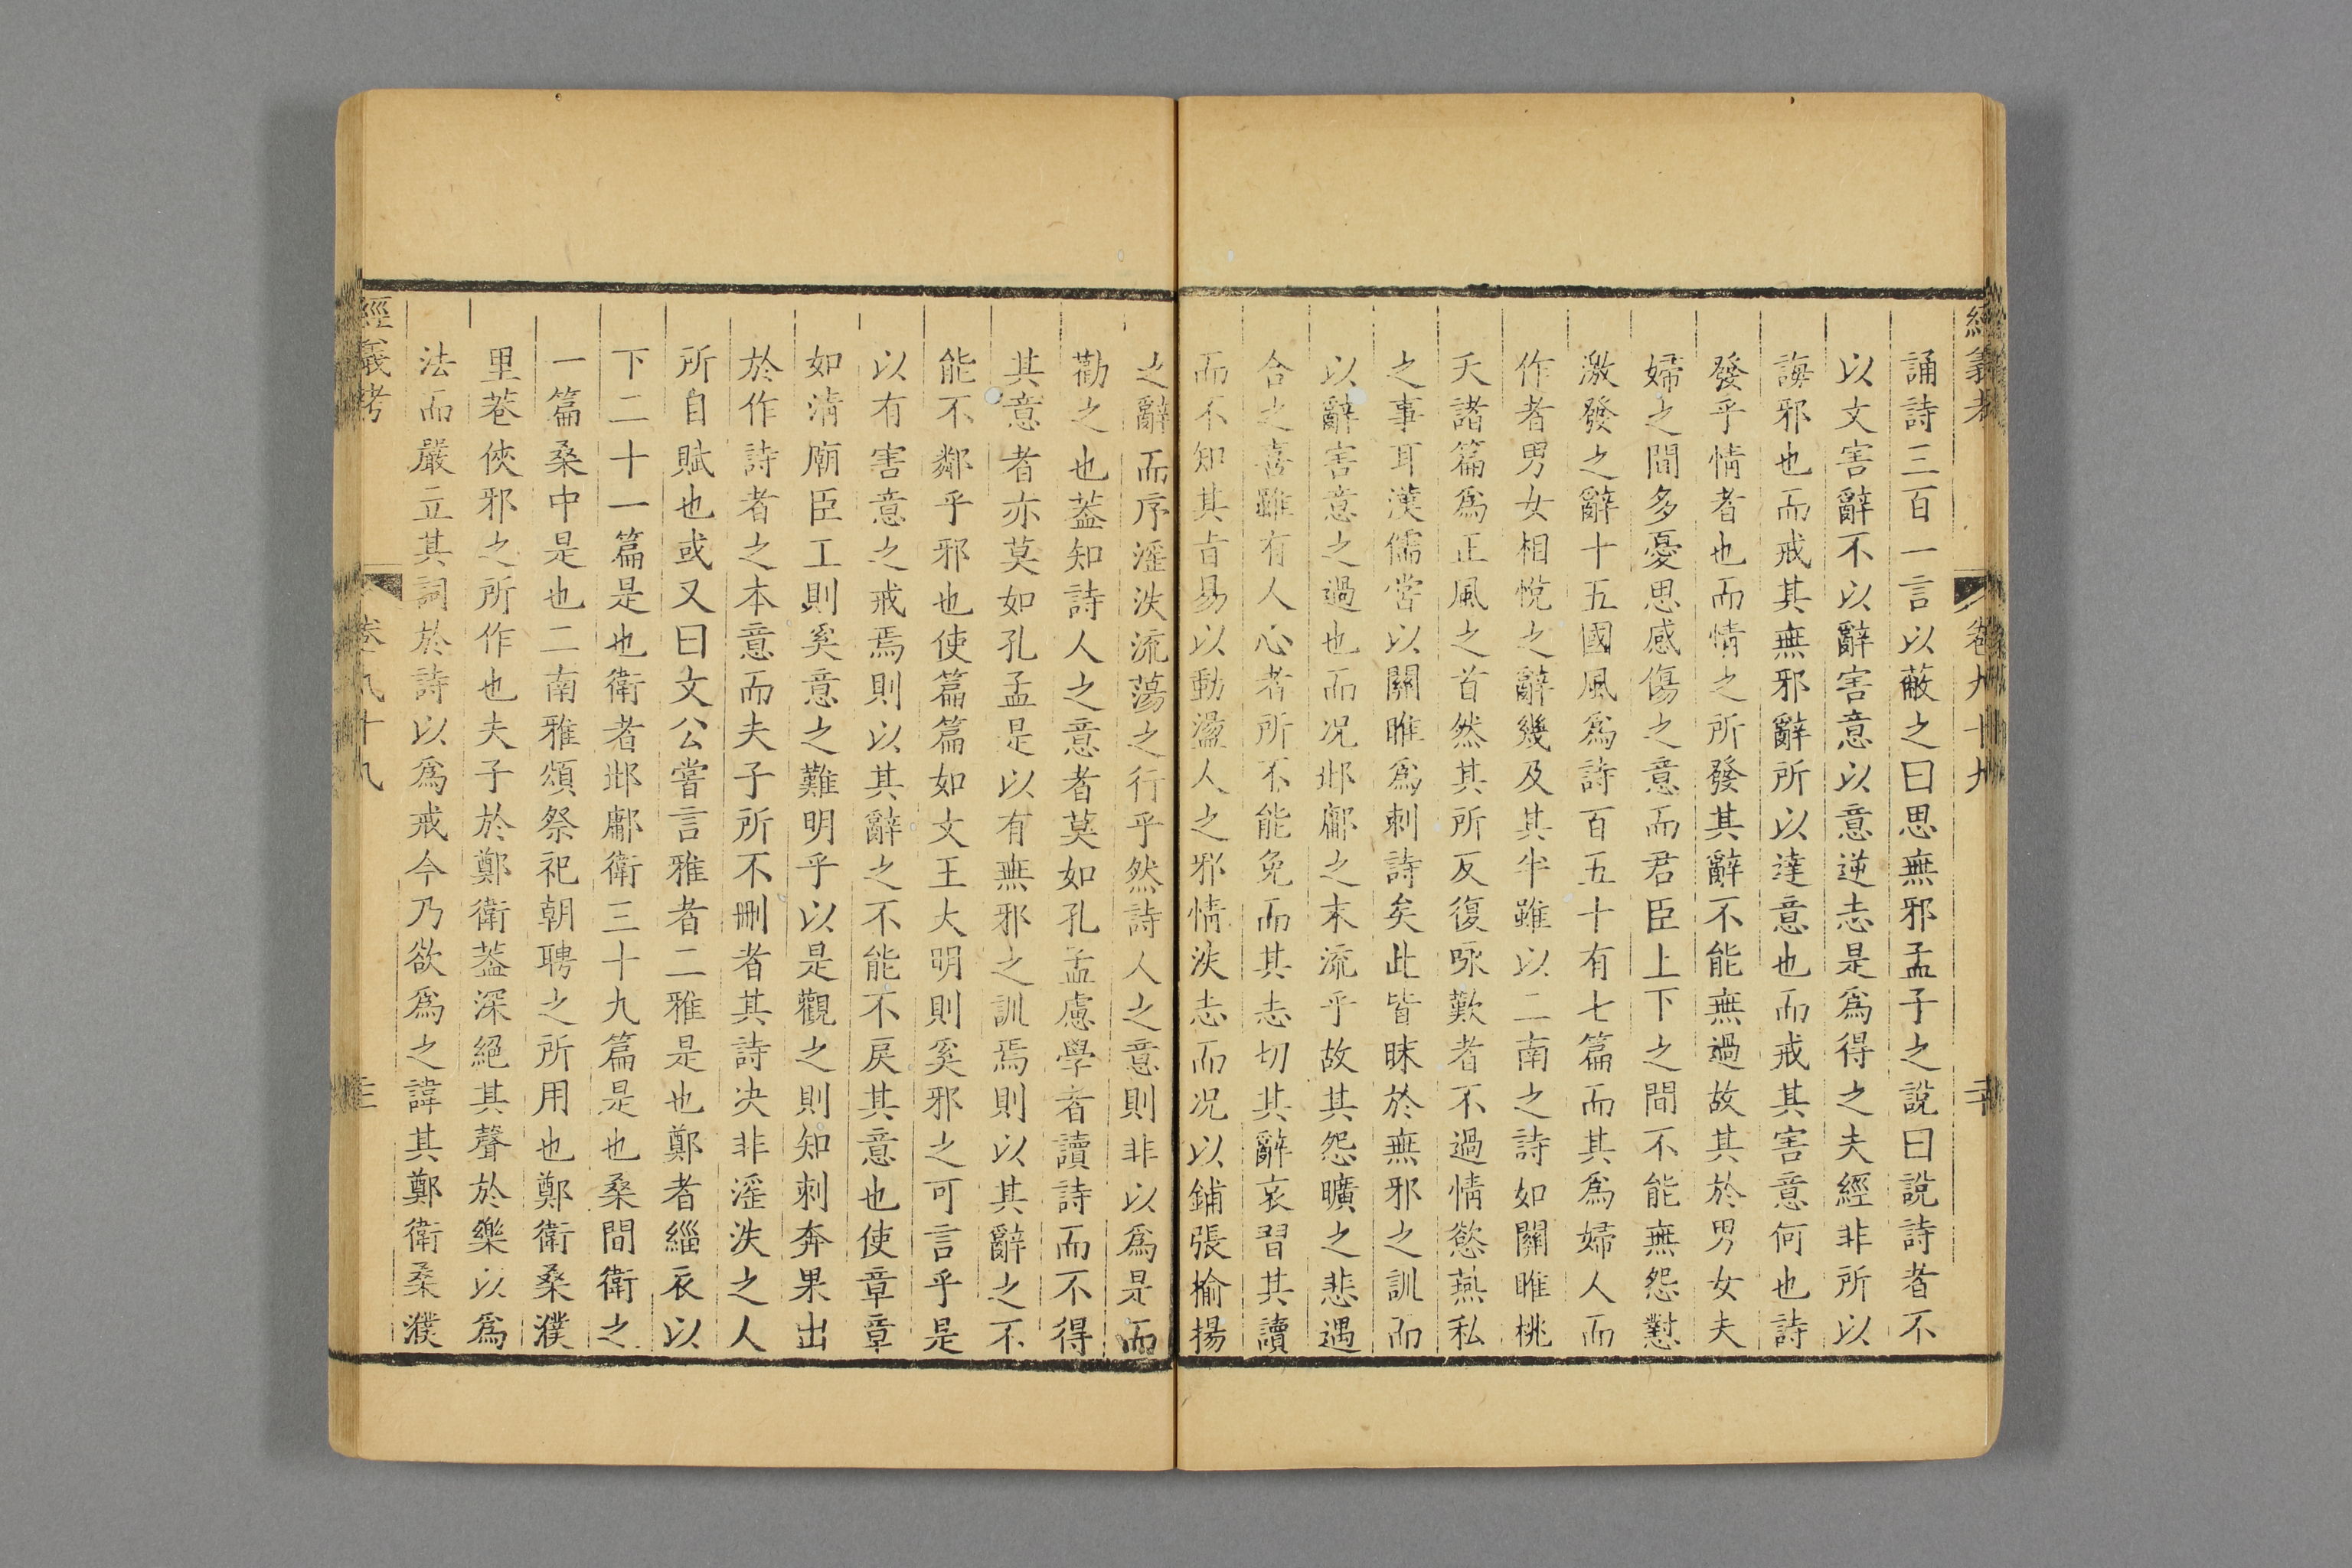 經義考
卷九十九
誦詩三百一言以蔽之曰思無邪孟子之說曰說詩者不
以文害辭不以辭害意以意逆志是爲得之夫經非所以
誨邪也而戒其無邪辭所以達意也而戒其害意何也詩
發乎情者也而情之所發其辭不能無過故其於男女夫
婦之間多憂思感傷之意而君臣上下之間不能無怨懟
激發之辭十五國風爲詩百五十有七篇而其爲婦人而
作者男女相悅之辭幾及其半雖以二南之詩如關雎桃
夭諸篇爲正風之首然其所反復咏歎者不過情慾燕私
之事耳漢儒嘗以關雎爲刺詩矣此皆昧於無邪之訓而
以辭害意之過也而况邶鄘之末流乎故其怨曠之悲遇
合之喜雖有人心者所不能免而其志切其辭哀習其讀
而不知其旨易以動盪人之邪情泆志而况以鋪張揄揚
之辭而序滛泆流蕩之行乎然詩人之意則非以爲是而
勸之也葢知詩人之意者莫如孔孟慮學者讀詩而不得
其意者亦莫如孔孟是以有無邪之訓焉則以其辭之不
能不鄰乎邪也使篇篇如文王大明則奚邪之可言乎是
以有害意之戒焉則以其辭之不能不戾其意也使章章
如淸廟臣工則奚意之難明乎以是觀之則知刺奔果出
於作詩者之本意而夫子所不刪者其詩决非滛泆之人
所自賦也或又曰文公嘗言雅者二雅是也鄭者緇衣以
下二十一篇是也衛者邶鄘衛三十九篇是也桑間衛之
一篇桑中是也二南雅頌祭祀朝聘之所用也鄭衛桑濮
里巷俠邪之所作也夫子於鄭衛葢深絕其聲於樂以爲
法而嚴立其詞於詩以爲戒今乃欲爲之諱其鄭衛桑濮
經義考
卷九十九